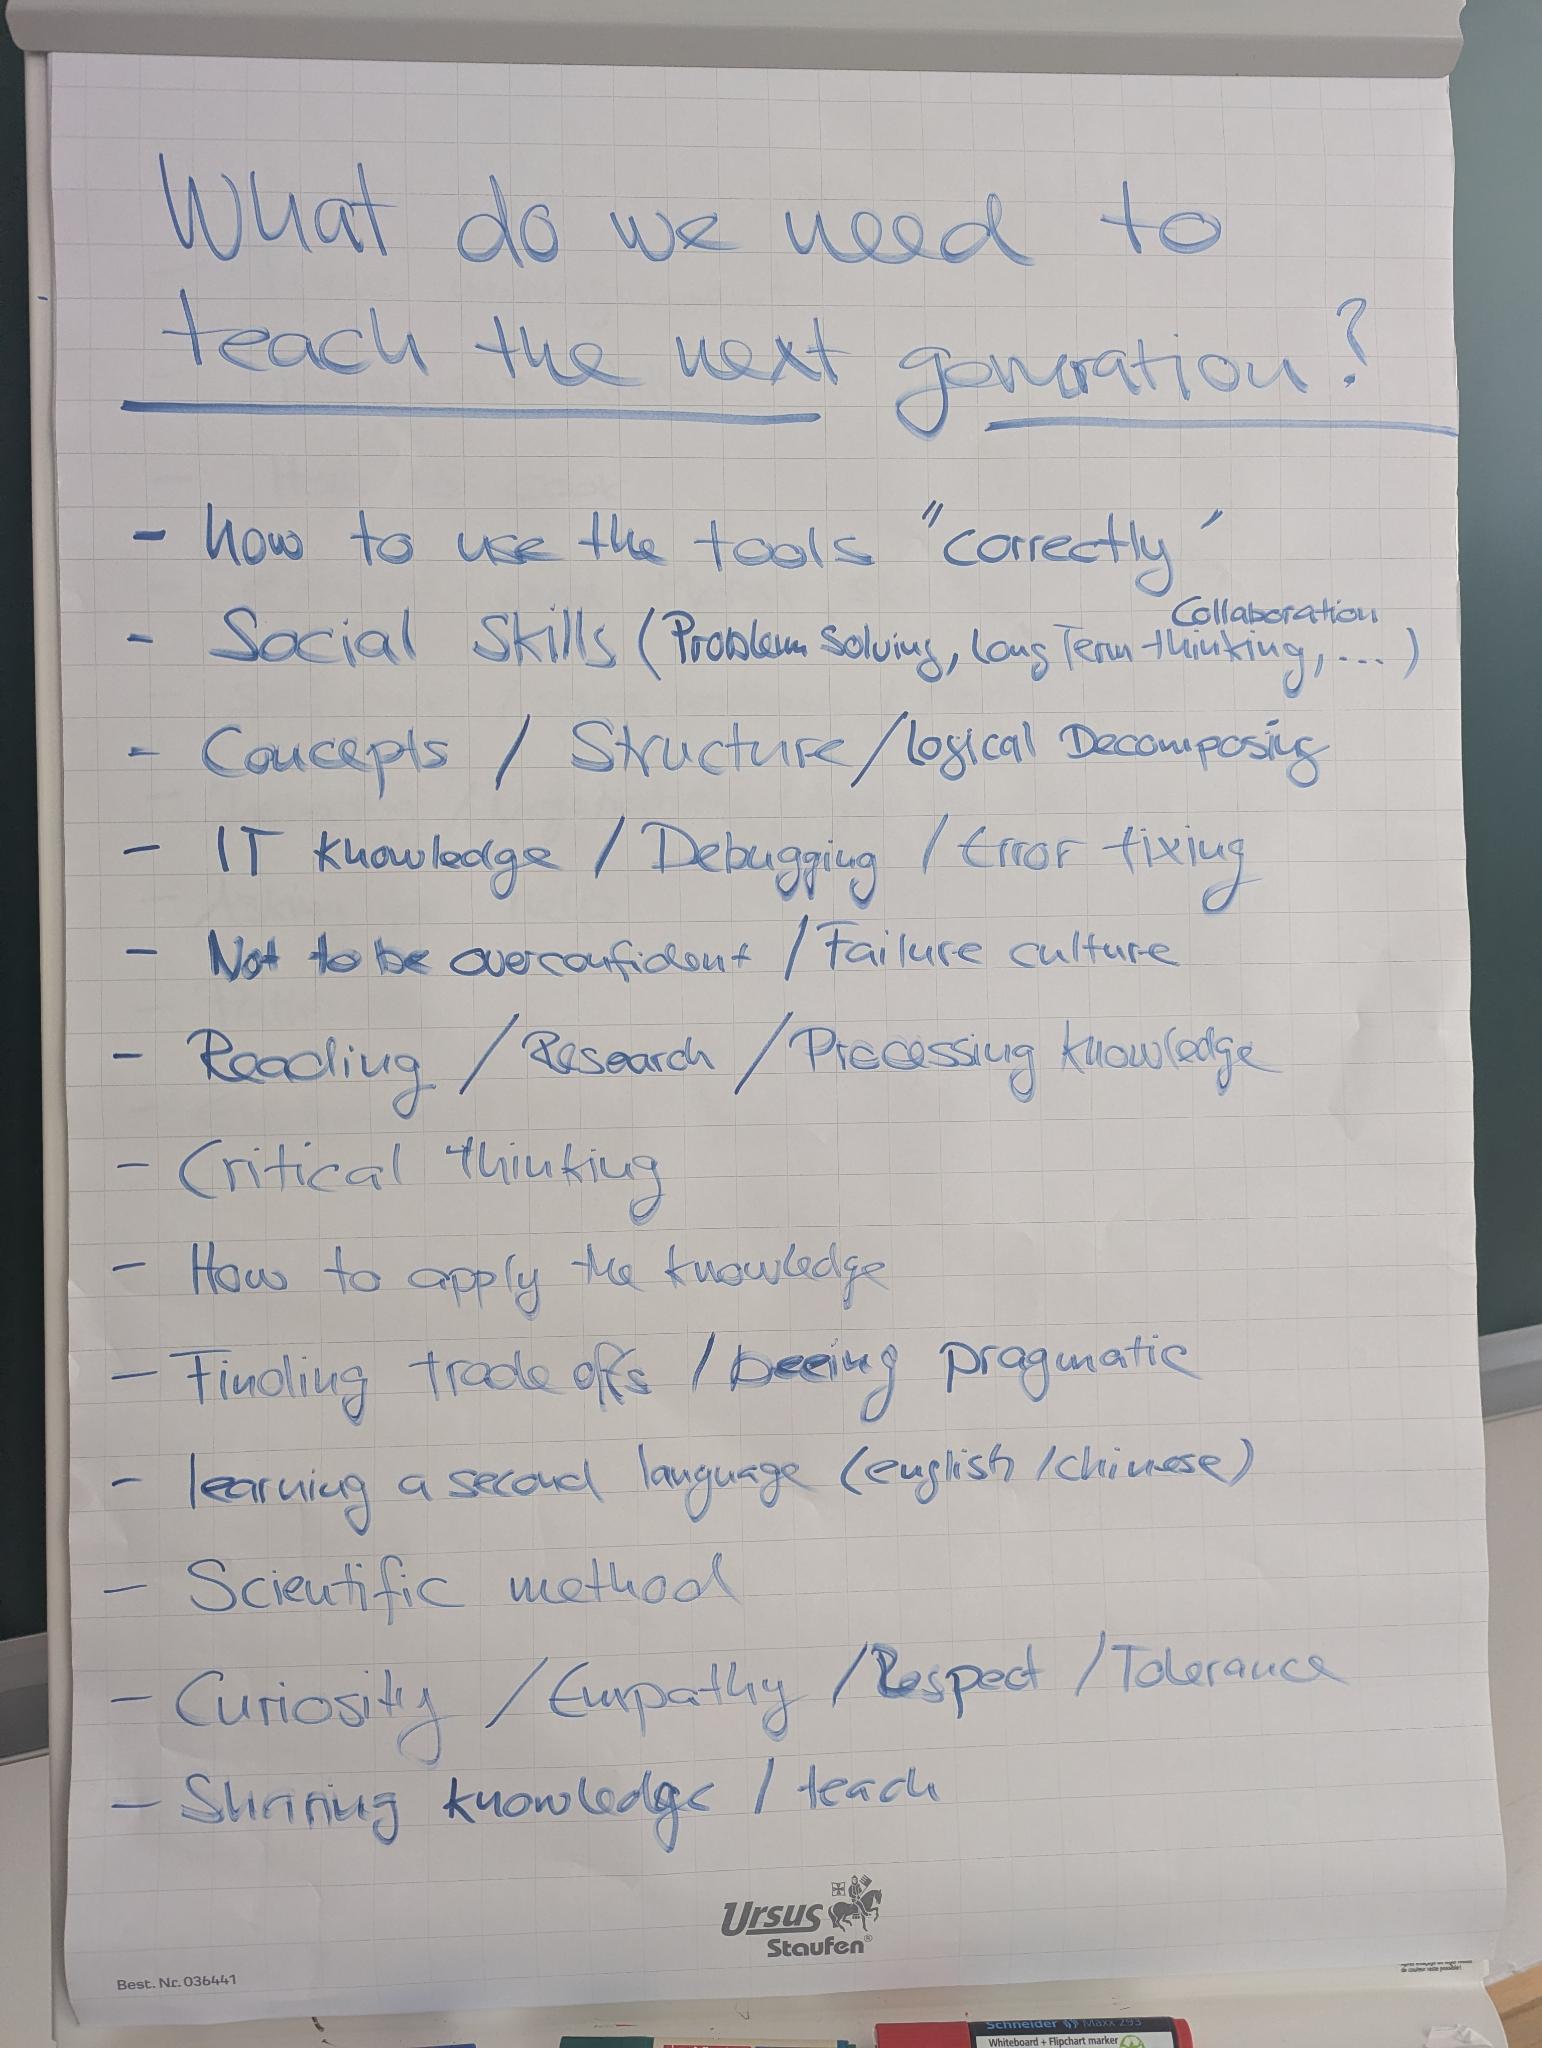 What do we need to
teach the next generation?
- how to use the tools "correctly"
Collaboration
- Social Skills (Problem Solving, Long Term thinking, ... )
- Concepts / Structure / logical Decomposing
- IT knowledge / Debugging / Error fixing
- Not to be overconfident / Failure culture
- Reading / Research / Processing knowledge
- Critical thinking
- How to apply the knowledge
- Finding trade offs / beeing pragmatic
- learning a second language (english / chinese)
- Scientific method
- Curiosity / Empathy / Respect / Tolerance
- Sharing knowledge / teach
Ursus
Staufen®
Best. Nr. 036441
Schneider Maxx 293
Whiteboard + Flipchart marker